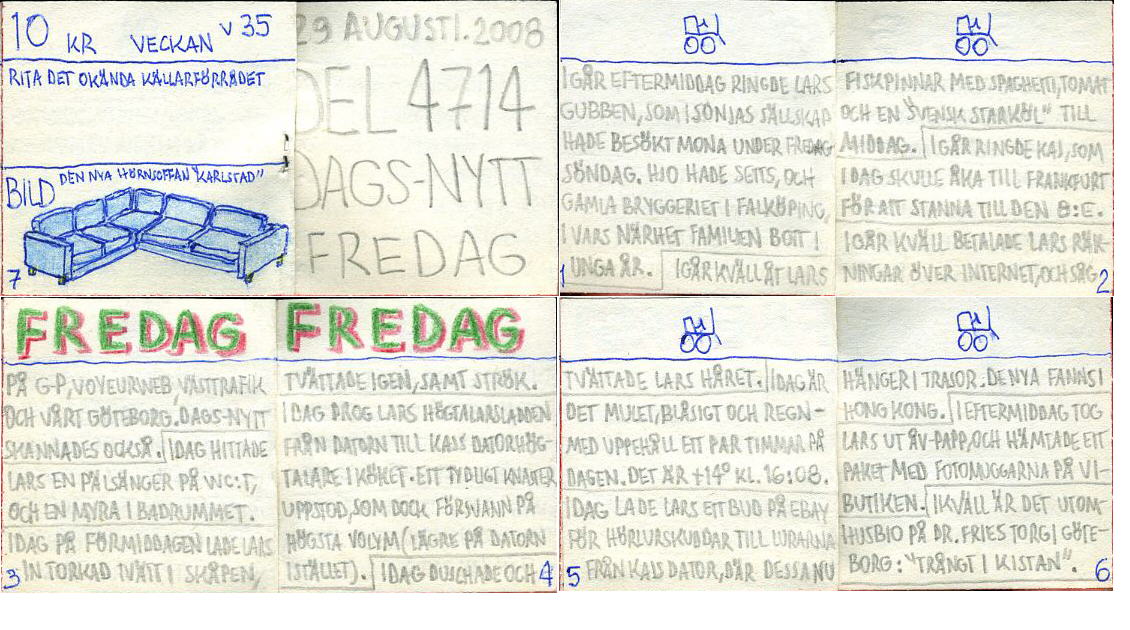 10 KR VECKAN V 35
RITA DET OKÄNDA KÄLLARFÖRRÅDET
BILD DEN NYA HÖRNSOFFAN "KARLSTAD"
7
29 AUGUSTI. 2008
DEL 4714
DAGS-NYTT
FREDAG
IGÅR EFTERMIDDAG RINGDE LARS
GUBBEN, SOM I SONJAS SÄLLSKAP
HADE BESÖKT MONA UNDER FREDAG
SÖNDAG. HJO HADE SETTS, OCH
GAMLA BRYGGERIET I FALKÖPING,
I VARS NÄRHET FAMILJEN BOTT I
UNGA ÅR. IGÅR KVÄLL ÅT LARS
1
FISKPINNAR MED SPAGHETTI, TOMAT
OCH EN "SVENSK STARKÖL" TILL
MIDDAG. IGÅR RINGDE KAJ, SOM
IDAG SKULLE ÅKA TILL FRANKFURT
FÖR ATT STANNA TILL DEN 8:E.
IGÅR KVÄLL BETALADE LARS RÄK-
NINGAR ÖVER INTERNET, OCH SÅG
2
FREDAG
PÅ G-P, VOYEURWEB, VÄSTTRAFIK
OCH VÅRT GÖTEBORG. DAGS-NYTT
SKANNADES OCKSÅ. IDAG HITTADE
LARS EN PÄLSÄNGER PÅ WC:T,
OCH EN MYRA I BADRUMMET.
IDAG PÅ FÖRMIDDAGEN LADE LARS
IN TORKAD TVÄTT I SKÅPEN,
3
FREDAG
TVÄTTADE IGEN, SAMT STRÖK.
IDAG DROG LARS HÖGTALARSLADDEN
FRÅN DATORN TILL KAJS DATORHÖG-
TALARE I KÖKET. ETT TYDLIGT KNASTER
UPPSTOD, SOM DOCK FÖRSVANN PÅ
HÖGSTA VOLYM (LÄGRE PÅ DATORN
ISTÄLLET). IDAG DUSCHADE OCH
4
TVÄTTADE LARS HÅRET. IDAG ÄR
DET MULET, BLÅSIGT OCH REGN-
MED UPPEHÅLL ETT PAR TIMMAR PÅ
DAGEN. DET ÄR +14° KL. 16:08.
IDAG LADE LARS ETT BUD PÅ EBAY
FÖR HÖRLURSKUDDAR TILL LURARNA
FRÅN KAJS DATOR, DÄR DESSA NU
5
HÄNGER I TRASOR. DE NYA FANNS I
HONG KONG. I EFTERMIDDAG TOG
LARS UT ÅV-PAPP, OCH HÄMTADE ETT
PAKET MED FOTOMUGGARNA PÅ VI-
BUTIKEN. IKVÄLL ÄR DET UTOM-
HUSBIO PÅ DR. FRIES TORG I GÖTE-
BORG: "TRÅNGT I KISTAN".
6